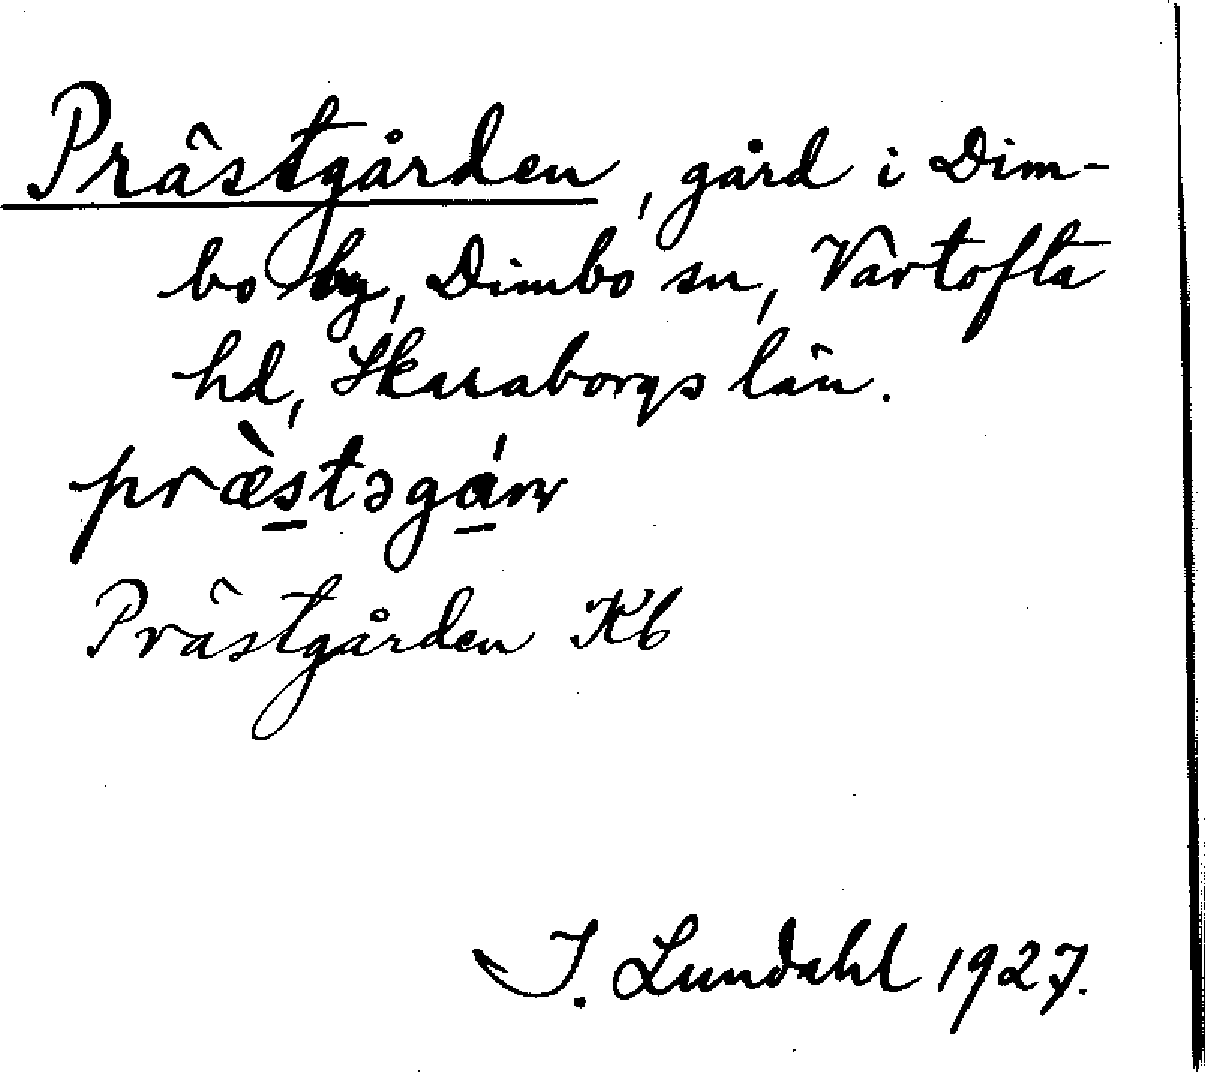 Prästgården, gård i Dim-
bo by, Dimbo sn, Vartofta
hd, Skaraborgs län.
præ̀s̲təgá̲rn
Prästgården Kb
I. Lundahl 1927.